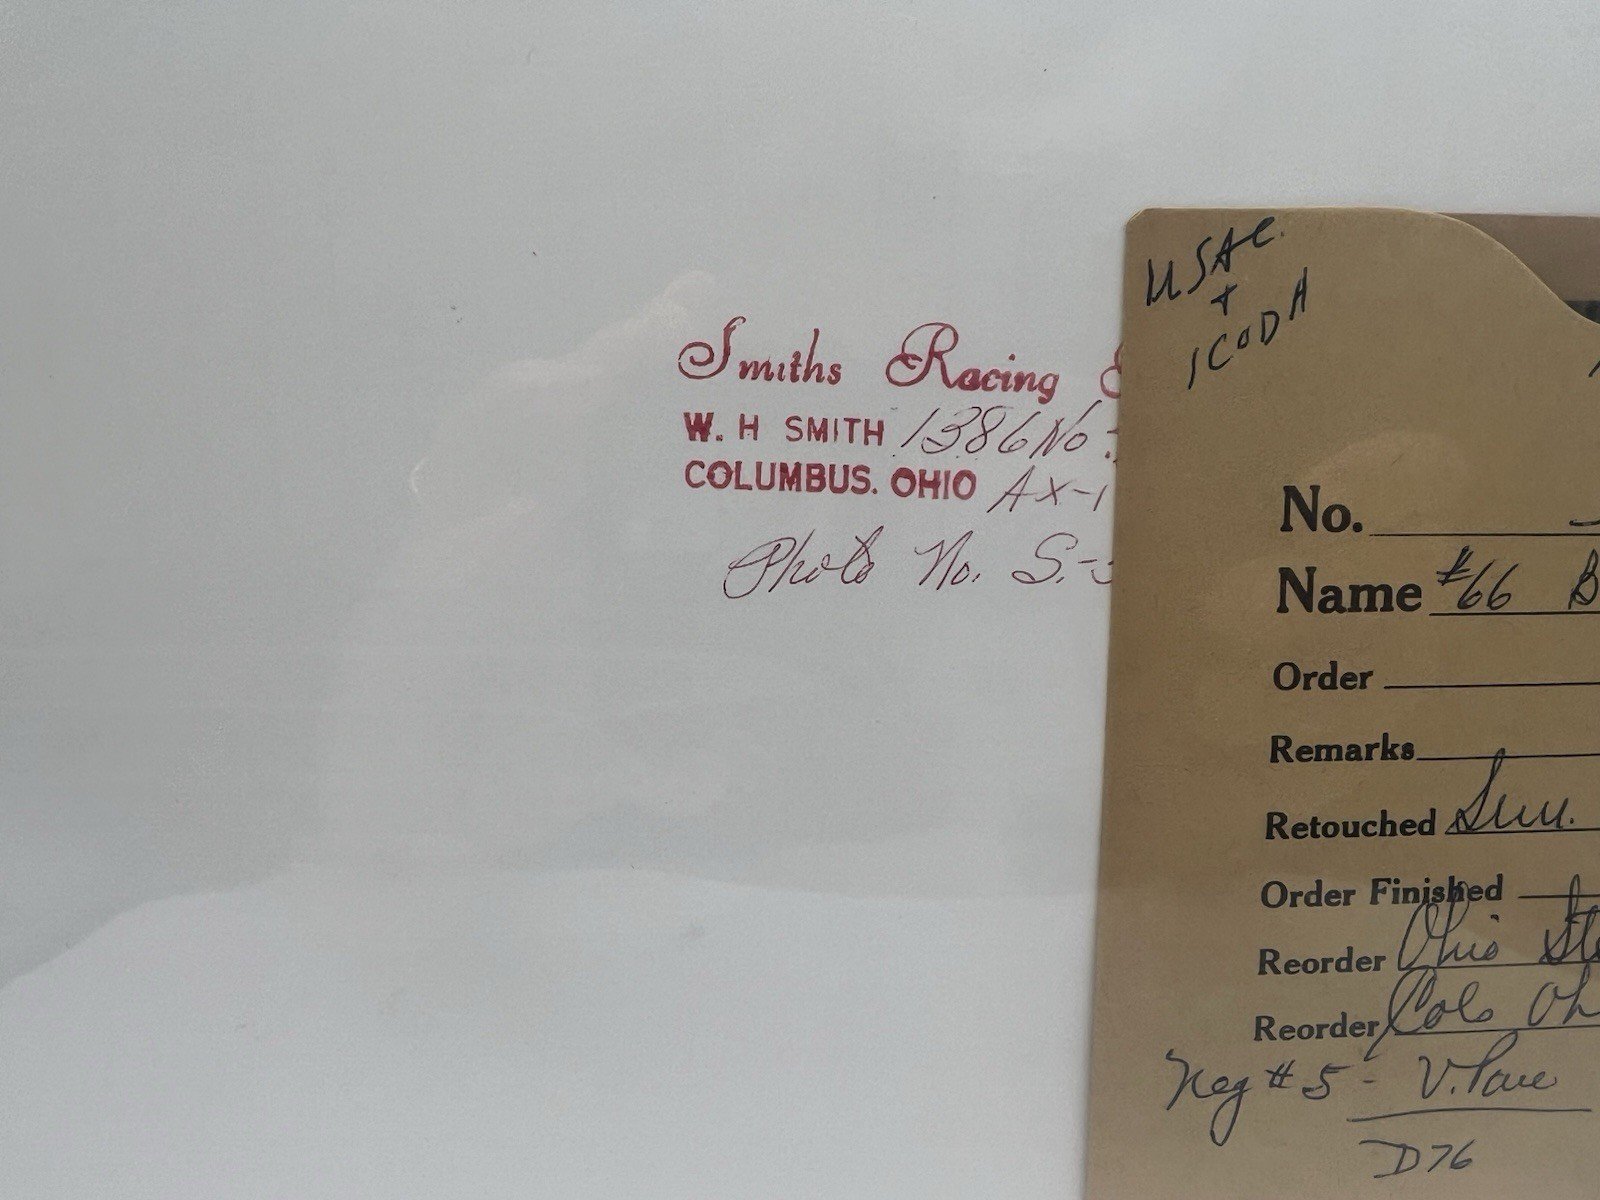 Smiths Racing
W. H SMITH 1386 No.
COLUMBUS. OHIO AX-1
Photo No. S.-
USAC.
+
ICODA
No.
Name #66 B
Order
Remarks
Retouched Sun.
Order Finished
Reorder Ohio
Reorder Colo Oh
Neg # 5 - V.
D76